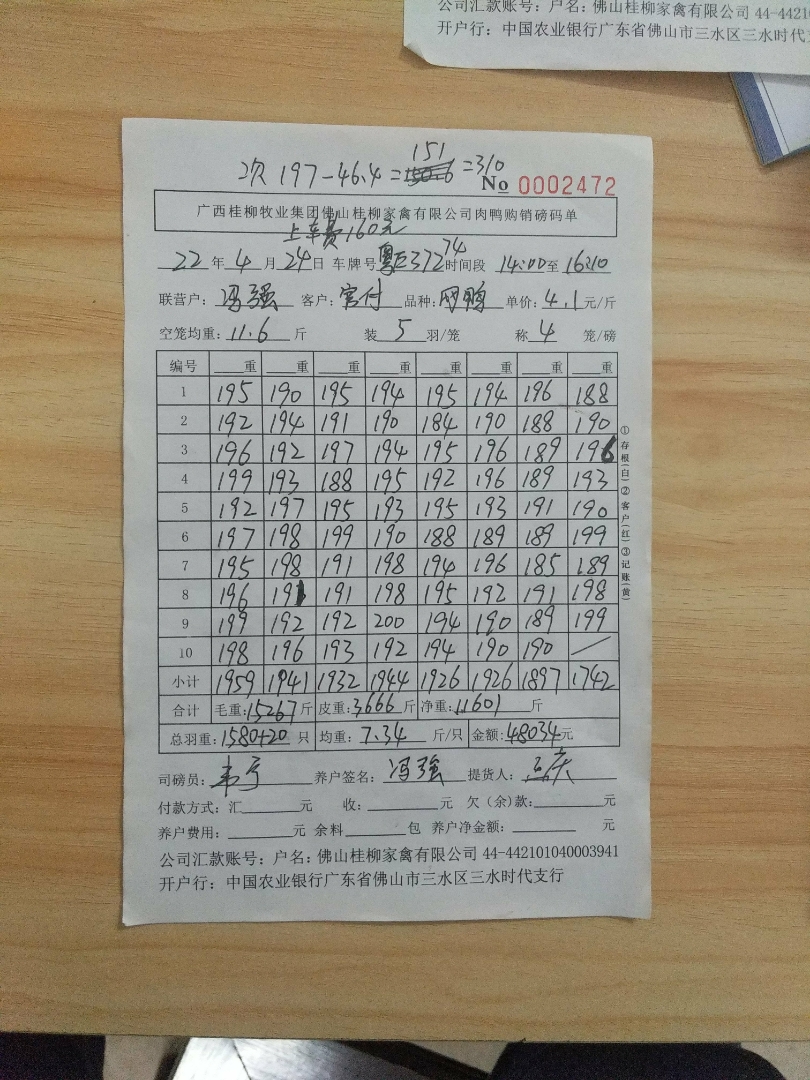 公司汇款账号：户名：佛山桂柳家禽有限公司 44-4421
开户行：中国农业银行广东省佛山市三水区三水时代支
151
次 197-46.4= =310
No 0002472
广西桂柳牧业集团佛山桂柳家禽有限公司肉鸭购销磅码单
上车费160元
22年4月24日 车牌号 37274 时间段 14:00至16:10
联营户：冯强 客户：官付 品种： 鸭 单价：4.1元/斤
空笼均重：11.6斤 装5羽/笼 称4笼/磅
编号 重 重 重 重 重 重 重 重
1 195 190 195 194 195 194 196 188
2 192 194 191 190 184 190 188 190
3 196 192 197 194 195 196 189 196
4 199 193 188 195 192 196 189 193
5 192 197 195 193 195 193 191 190
6 197 198 199 190 188 189 189 199
7 195 198 191 198 194 196 185 189
8 196 191 191 198 195 192 191 198
9 199 192 192 200 194 190 189 199
10 198 196 193 192 194 190 190 /
小计 1959 1941 1932 1944 1926 1926 1897 1742
合计 毛重：15267斤 皮重：3666斤 净重：11601斤
总羽重：1580+20只 均重：7.34斤/只 金额：48034元
司磅员： 养户签名：冯强 提货人：
付款方式：汇 元 收： 元 欠（余）款： 元
养户费用： 元 余料 包 养户净金额： 元
公司汇款账号：户名：佛山桂柳家禽有限公司 44-442101040003941
开户行：中国农业银行广东省佛山市三水区三水时代支行
①存根(白)②客户(红)③记账(黄)